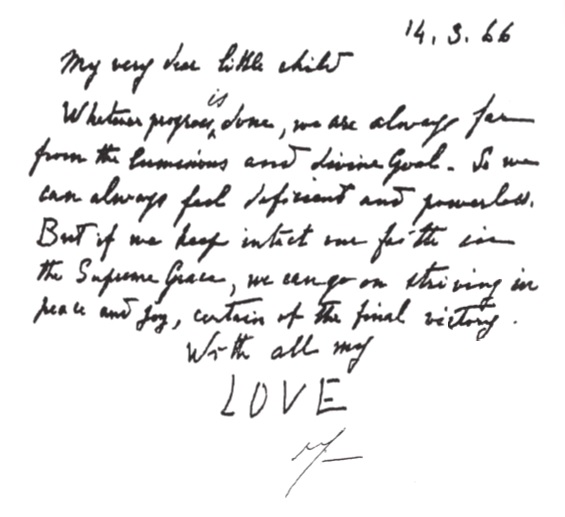 14.3.66
My very dear little child
Whatever progress is done, we are always far
from the luminous and divine Goal. So we
can always feel deficient and powerless.
But if we keep intact our faith in
the Supreme Grace, we can go on striving in
peace and joy, certain of the final victory.
With all my
LOVE